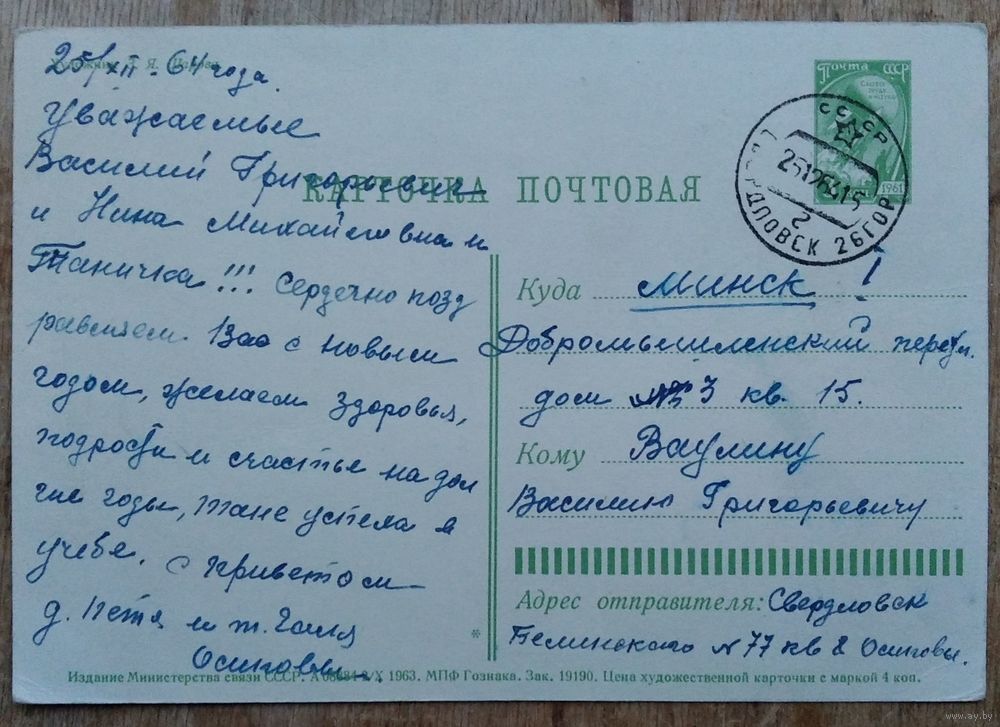 25/XII-64 года.
Уважаемые
Василий Григорьевич
и Нина Михайловна и
Таничка!!! Сердечно позд
равляем Вас с новым
годом, желаем здоровья,
бодрости и счастье на дол
гие годы, тане успеха в
учебе. с приветом
д. Петя и т. Галя
Осиповы
Художник Я.
КАРТОЧКА ПОЧТОВАЯ
Почта СССР
1961
СССР
251264 15
2
СВЕРДЛОВСК 26 ГОР
Куда Минск!
Добромысленский переул.
дом № 3 кв. 15.
Кому Ваулину
Василию Григорьевичу
Адрес отправителя: Свердловск
Белинского N 77 кв 8 Осиповы.
*
Издание Министерства связи СССР. А 3/X 1963. МПФ Гознака. Зак. 19190. Цена художественной карточки с маркой 4 коп.
www.ay.by